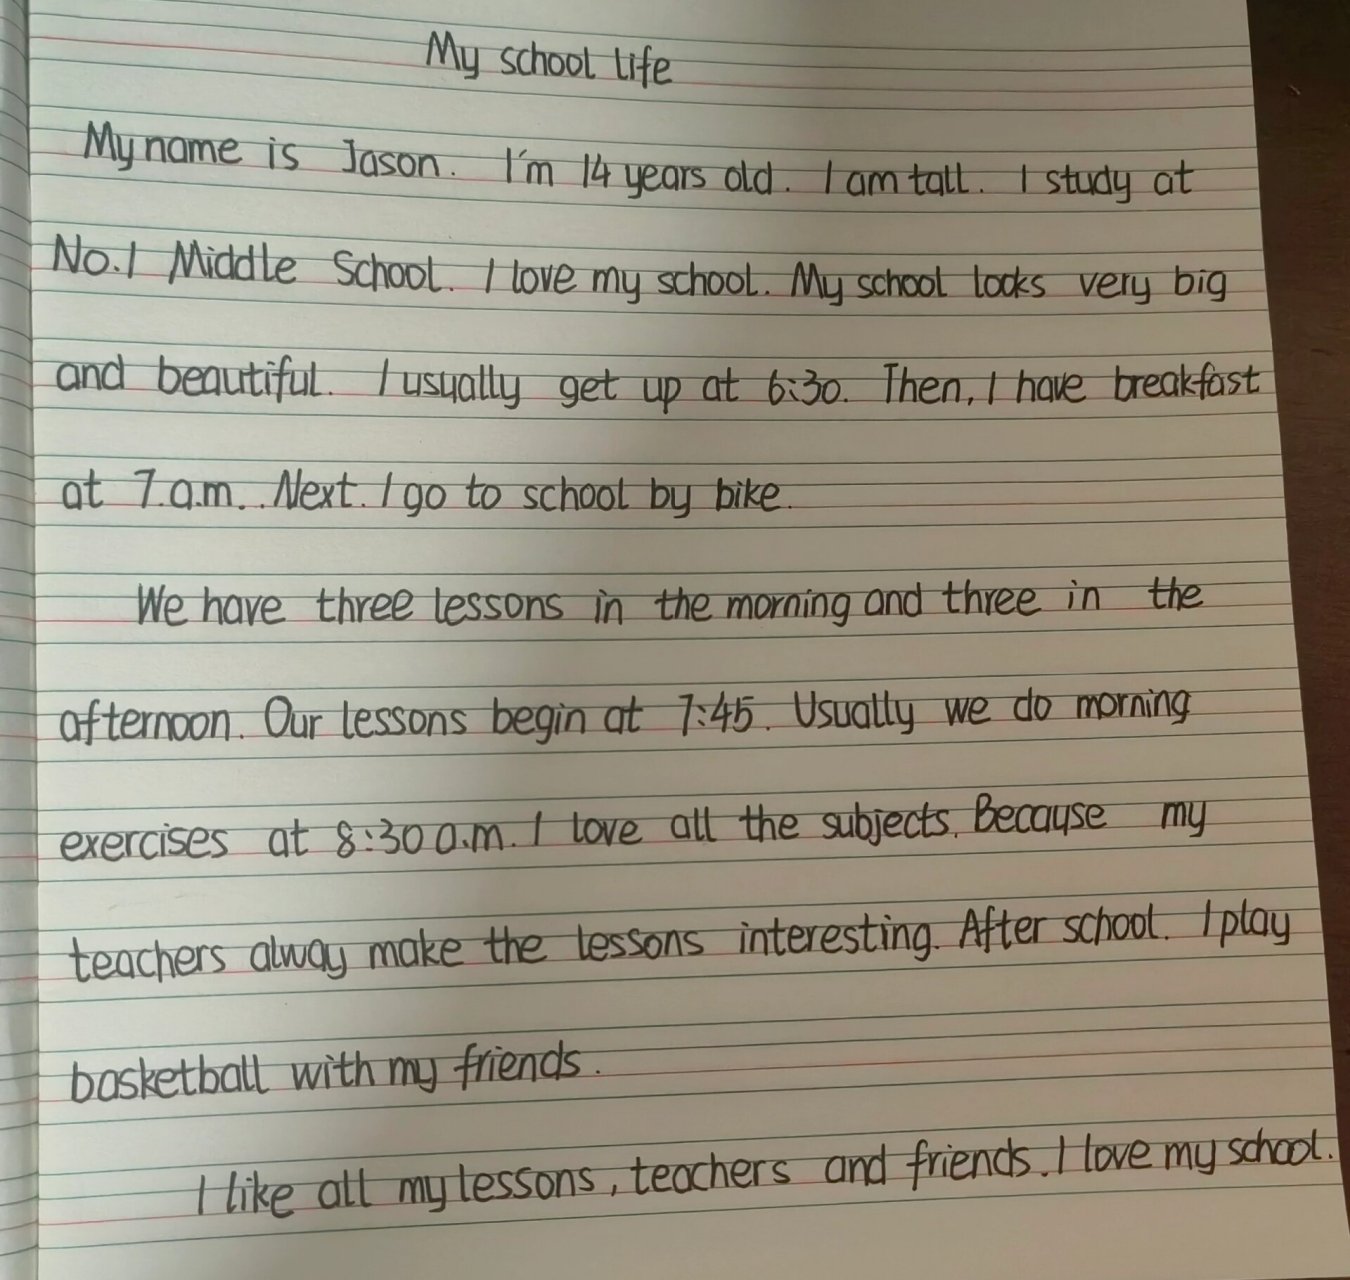 My school life
My name is Jason. I'm 14 years old. I am tall. I study at
No.1 Middle School. I love my school. My school looks very big
and beautiful. I usually get up at 6:30. Then, I have breakfast
at 7.a.m.. Next. I go to school by bike.
We have three lessons in the morning and three in the
afternoon. Our lessons begin at 7:45. Usually we do morning
exercises at 8:30 a.m. I love all the subjects. Because my
teachers alway make the lessons interesting. After school. I play
basketball with my friends.
I like all my lessons, teachers and friends. I love my school.